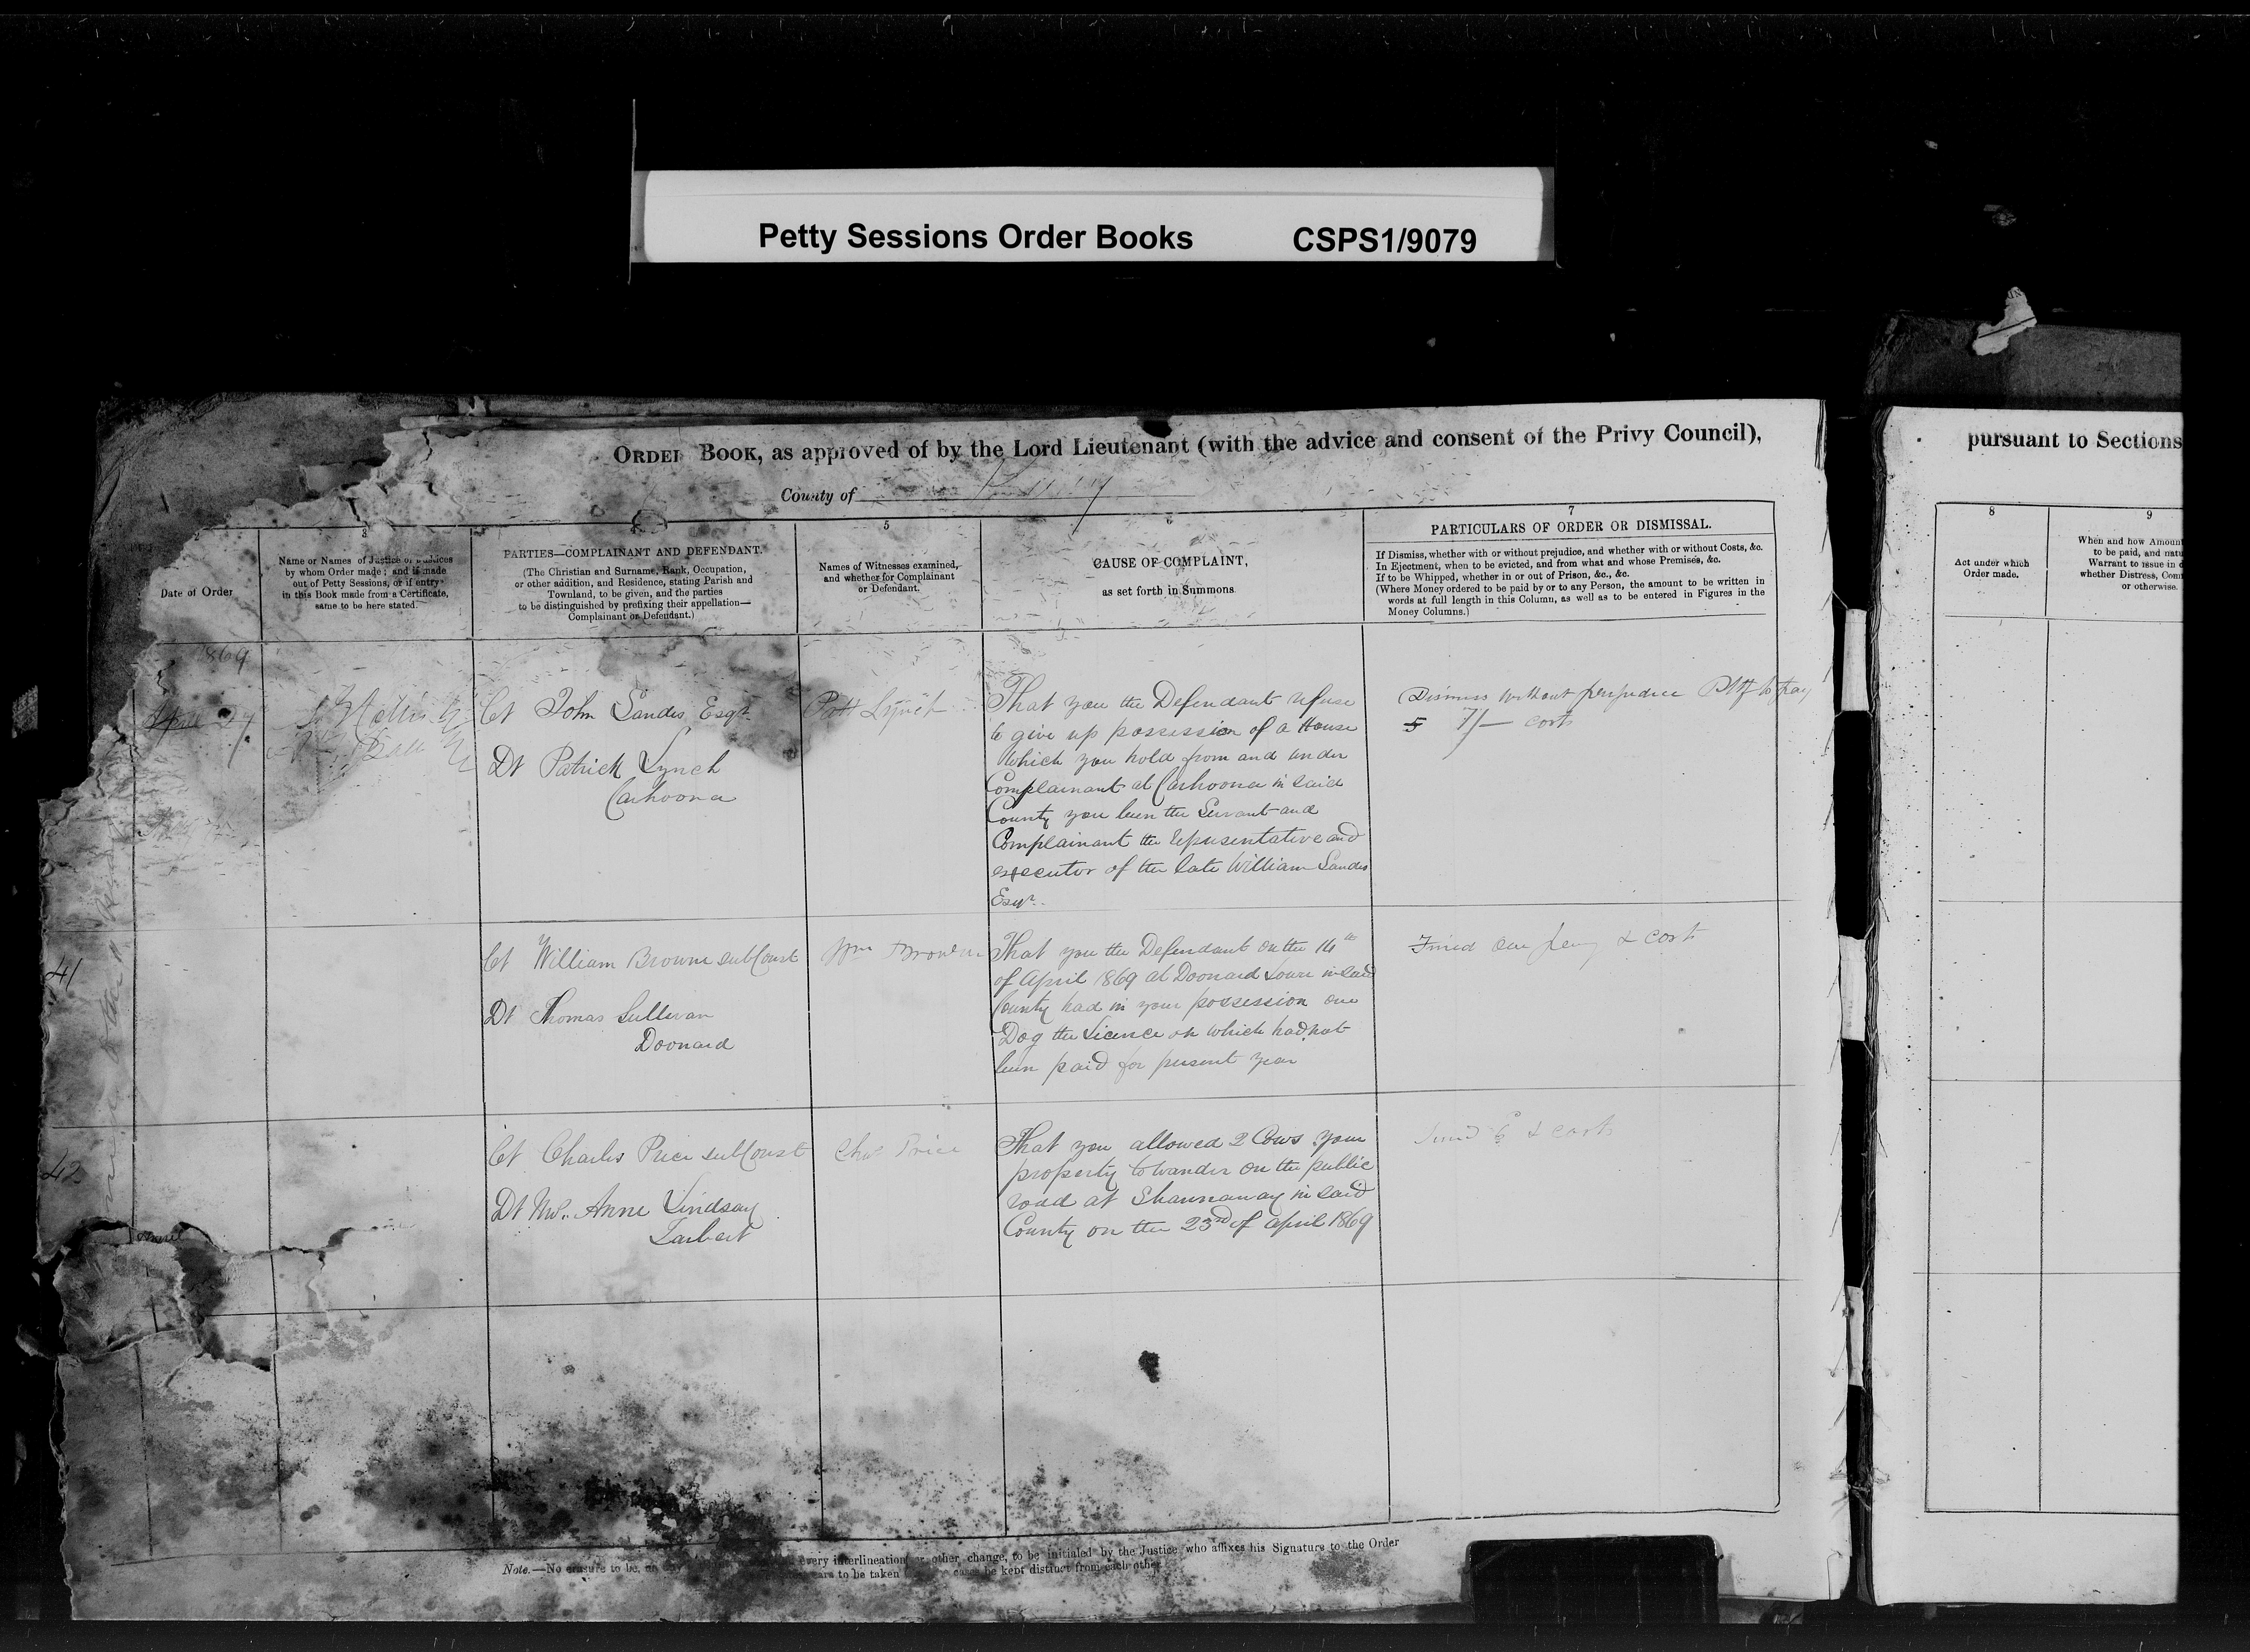 Petty Sessions Order Books CSPS1/9079
ORDER BOOK, as approved of by the Lord Lieutenant (with the advice and consent of the Privy Council),
pursuant to Sections
County of
3
5
6
7
8
9
Date of Order
Name or Names of Justice or Justices
by whom Order made; and if made
out of Petty Sessions, or if entry
in this Book made from a Certificate,
same to be here stated.
PARTIES—COMPLAINANT AND DEFENDANT.
(The Christian and Surname, Rank, Occupation,
or other addition, and Residence, stating Parish and
Townland, to be given, and the parties
to be distinguished by prefixing their appellation—
Complainant or Defendant.)
Names of Witnesses examined,
and whether for Complainant
or Defendant.
CAUSE OF COMPLAINT,
as set forth in Summons.
PARTICULARS OF ORDER OR DISMISSAL.
If Dismiss, whether with or without prejudice, and whether with or without Costs, &c.
In Ejectment, when to be evicted, and from what and whose Premises, &c.
If to be Whipped, whether in or out of Prison, &c., &c.
(Where Money ordered to be paid by or to any Person, the amount to be written in
words at full length in this Column, as well as to be entered in Figures in the
Money Columns.)
Act under which
Order made.
When and how Amount
to be paid, and natu
Warrant to issue in d
whether Distress, Com
or otherwise.
1869
April 27
Ct John Sandes Esqr
Dt Patrick Lynch
Carhoona
Patt Lynch
That you the Defendant refuse
to give up possession of a House
which you hold from and under
Complainant at Carhoona in said
County you been the Servant and
Complainant the representative and
executor of the late William Sandes
Esqr.
Dismiss without prejudice Plff to pay
5 7/- costs
41
Ct William Browne subConst
Dt Thomas Sullivan
Doonard
Wm Browne
That you the Defendant on the 14th
of April 1869 at Doonard Lower in said
County had in your possession one
Dog the Licence on which had not
been paid for present year
Fined one penny & costs
42
Ct Charles Price subConst
Dt Mrs. Anne Lindsay
Tarbert
Chas Price
That you allowed 2 Cows your
property to wander on the public
road at Shannaway in said
County on the 23rd of April 1869
Fined 6 & costs
Note.—No erasure to be every interlineation or other change, to be initialed by the Justice who affixes his Signature to the Order
to be taken cases be kept distinct from each other